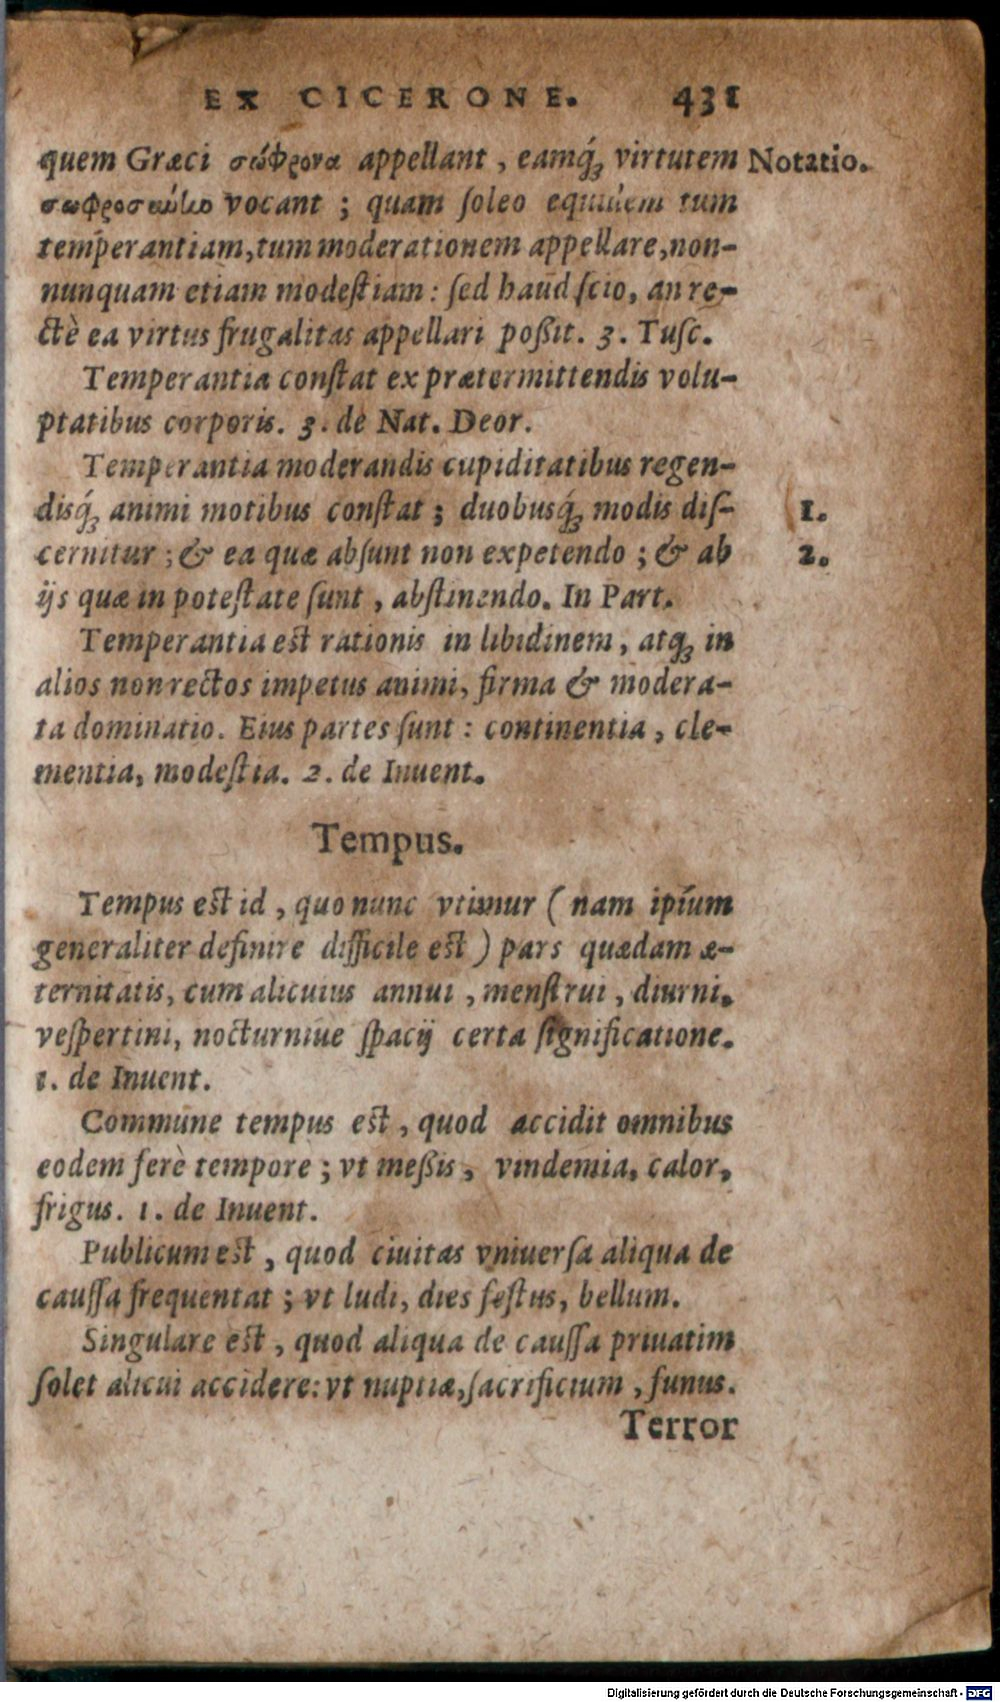 EX CICERONE. 431
quem Græci σώφρονα appellant, eamq́; virtutem Notatio.
σωφροσύνην vocant; quam ſoleo equidem tum
temperantiam, tum moderationem appellare, non-
nunquam etiam modeſtiam: ſed haud ſcio, an re-
ctè ea virtus frugalitas appellari poßit. 3. Tuſc.
Temperantia conſtat ex prætermittendis volu-
ptatibus corporis. 3. de Nat. Deor.
Temperantia moderandis cupiditatibus regen-
disq́; animi motibus conſtat; duobusq́; modis diſ- 1.
cernitur; & ea quæ abſunt non expetendo; & ab 2.
ijs quæ in poteſtate ſunt, abſtinendo. In Part.
Temperantia eſt rationis in libidinem, atq; in
alios non rectos impetus animi, firma & modera-
ta dominatio. Eius partes ſunt: continentia, cle-
mentia, modeſtia. 2. de Inuent.
Tempus.
Tempus eſt id, quo nunc vtimur (nam ipſum
generaliter definire difficile eſt) pars quædam æ-
ternitatis, cum alicuius annui, menſtrui, diurni,
veſpertini, nocturniue ſpacij certa ſignificatione.
1. de Inuent.
Commune tempus eſt, quod accidit omnibus
eodem ferè tempore; vt meßis, vindemia, calor,
frigus. 1. de Inuent.
Publicum eſt, quod ciuitas vniuerſa aliqua de
cauſſa frequentat; vt ludi, dies feſtus, bellum.
Singulare eſt, quod aliqua de cauſſa priuatim
ſolet alicui accidere: vt nuptiæ, ſacrificium, funus.
Terror
Digitalisierung gefördert durch die Deutsche Forschungsgemeinschaft - DFG